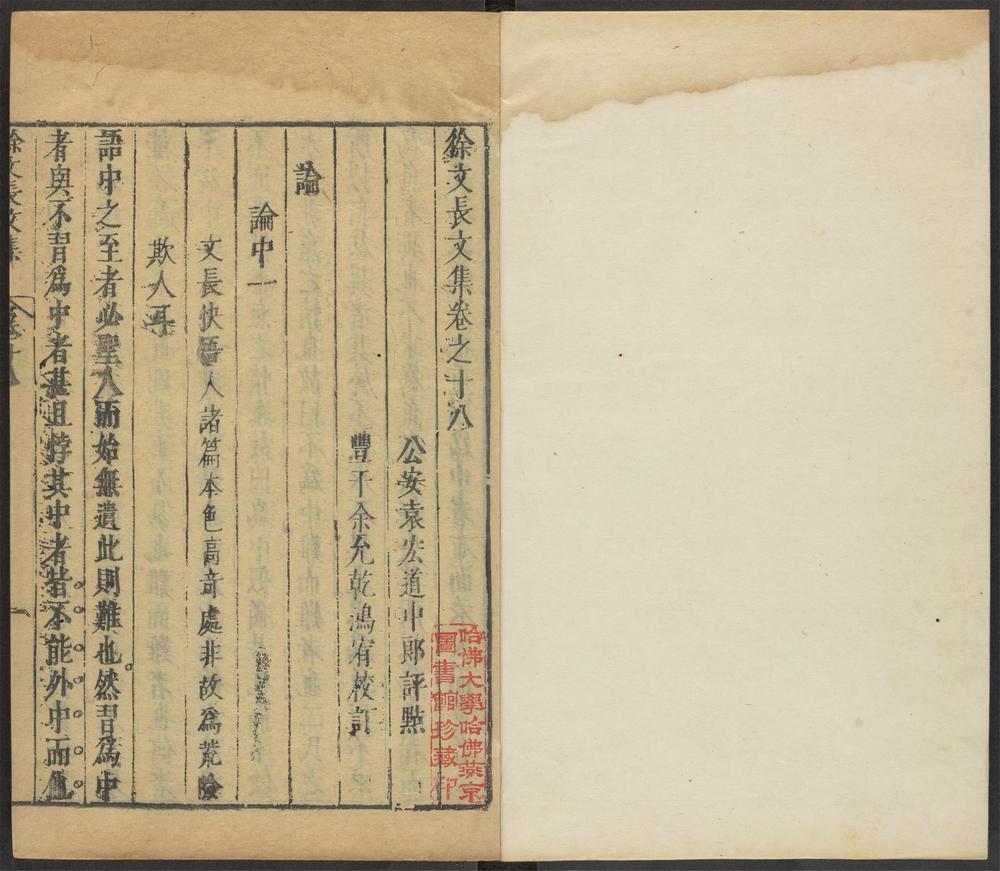 徐文長文集卷之十八
公安袁宏道中郎評點
豐干余允乾鴻宥校訂
論
論中一
文長快語人諸篇本色高奇處非故為荒險
欺人耳
語中之至者必聖人而始無遺此則難也然習爲中
者與不習爲中者甚且悖其中者皆不能外中而他
徐文長文集
卷十八
一
哈佛大學哈佛燕京
圖書館珍藏印